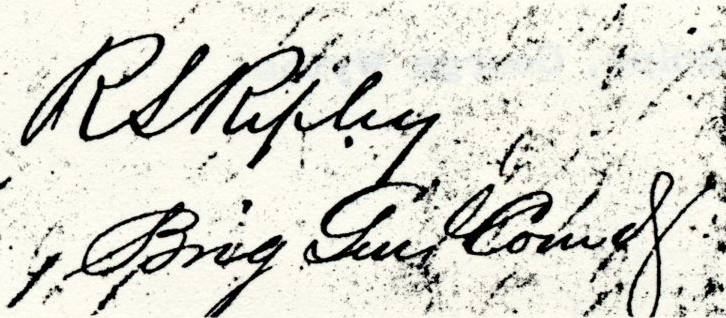 R S Ripley
Brig Genl Comdg